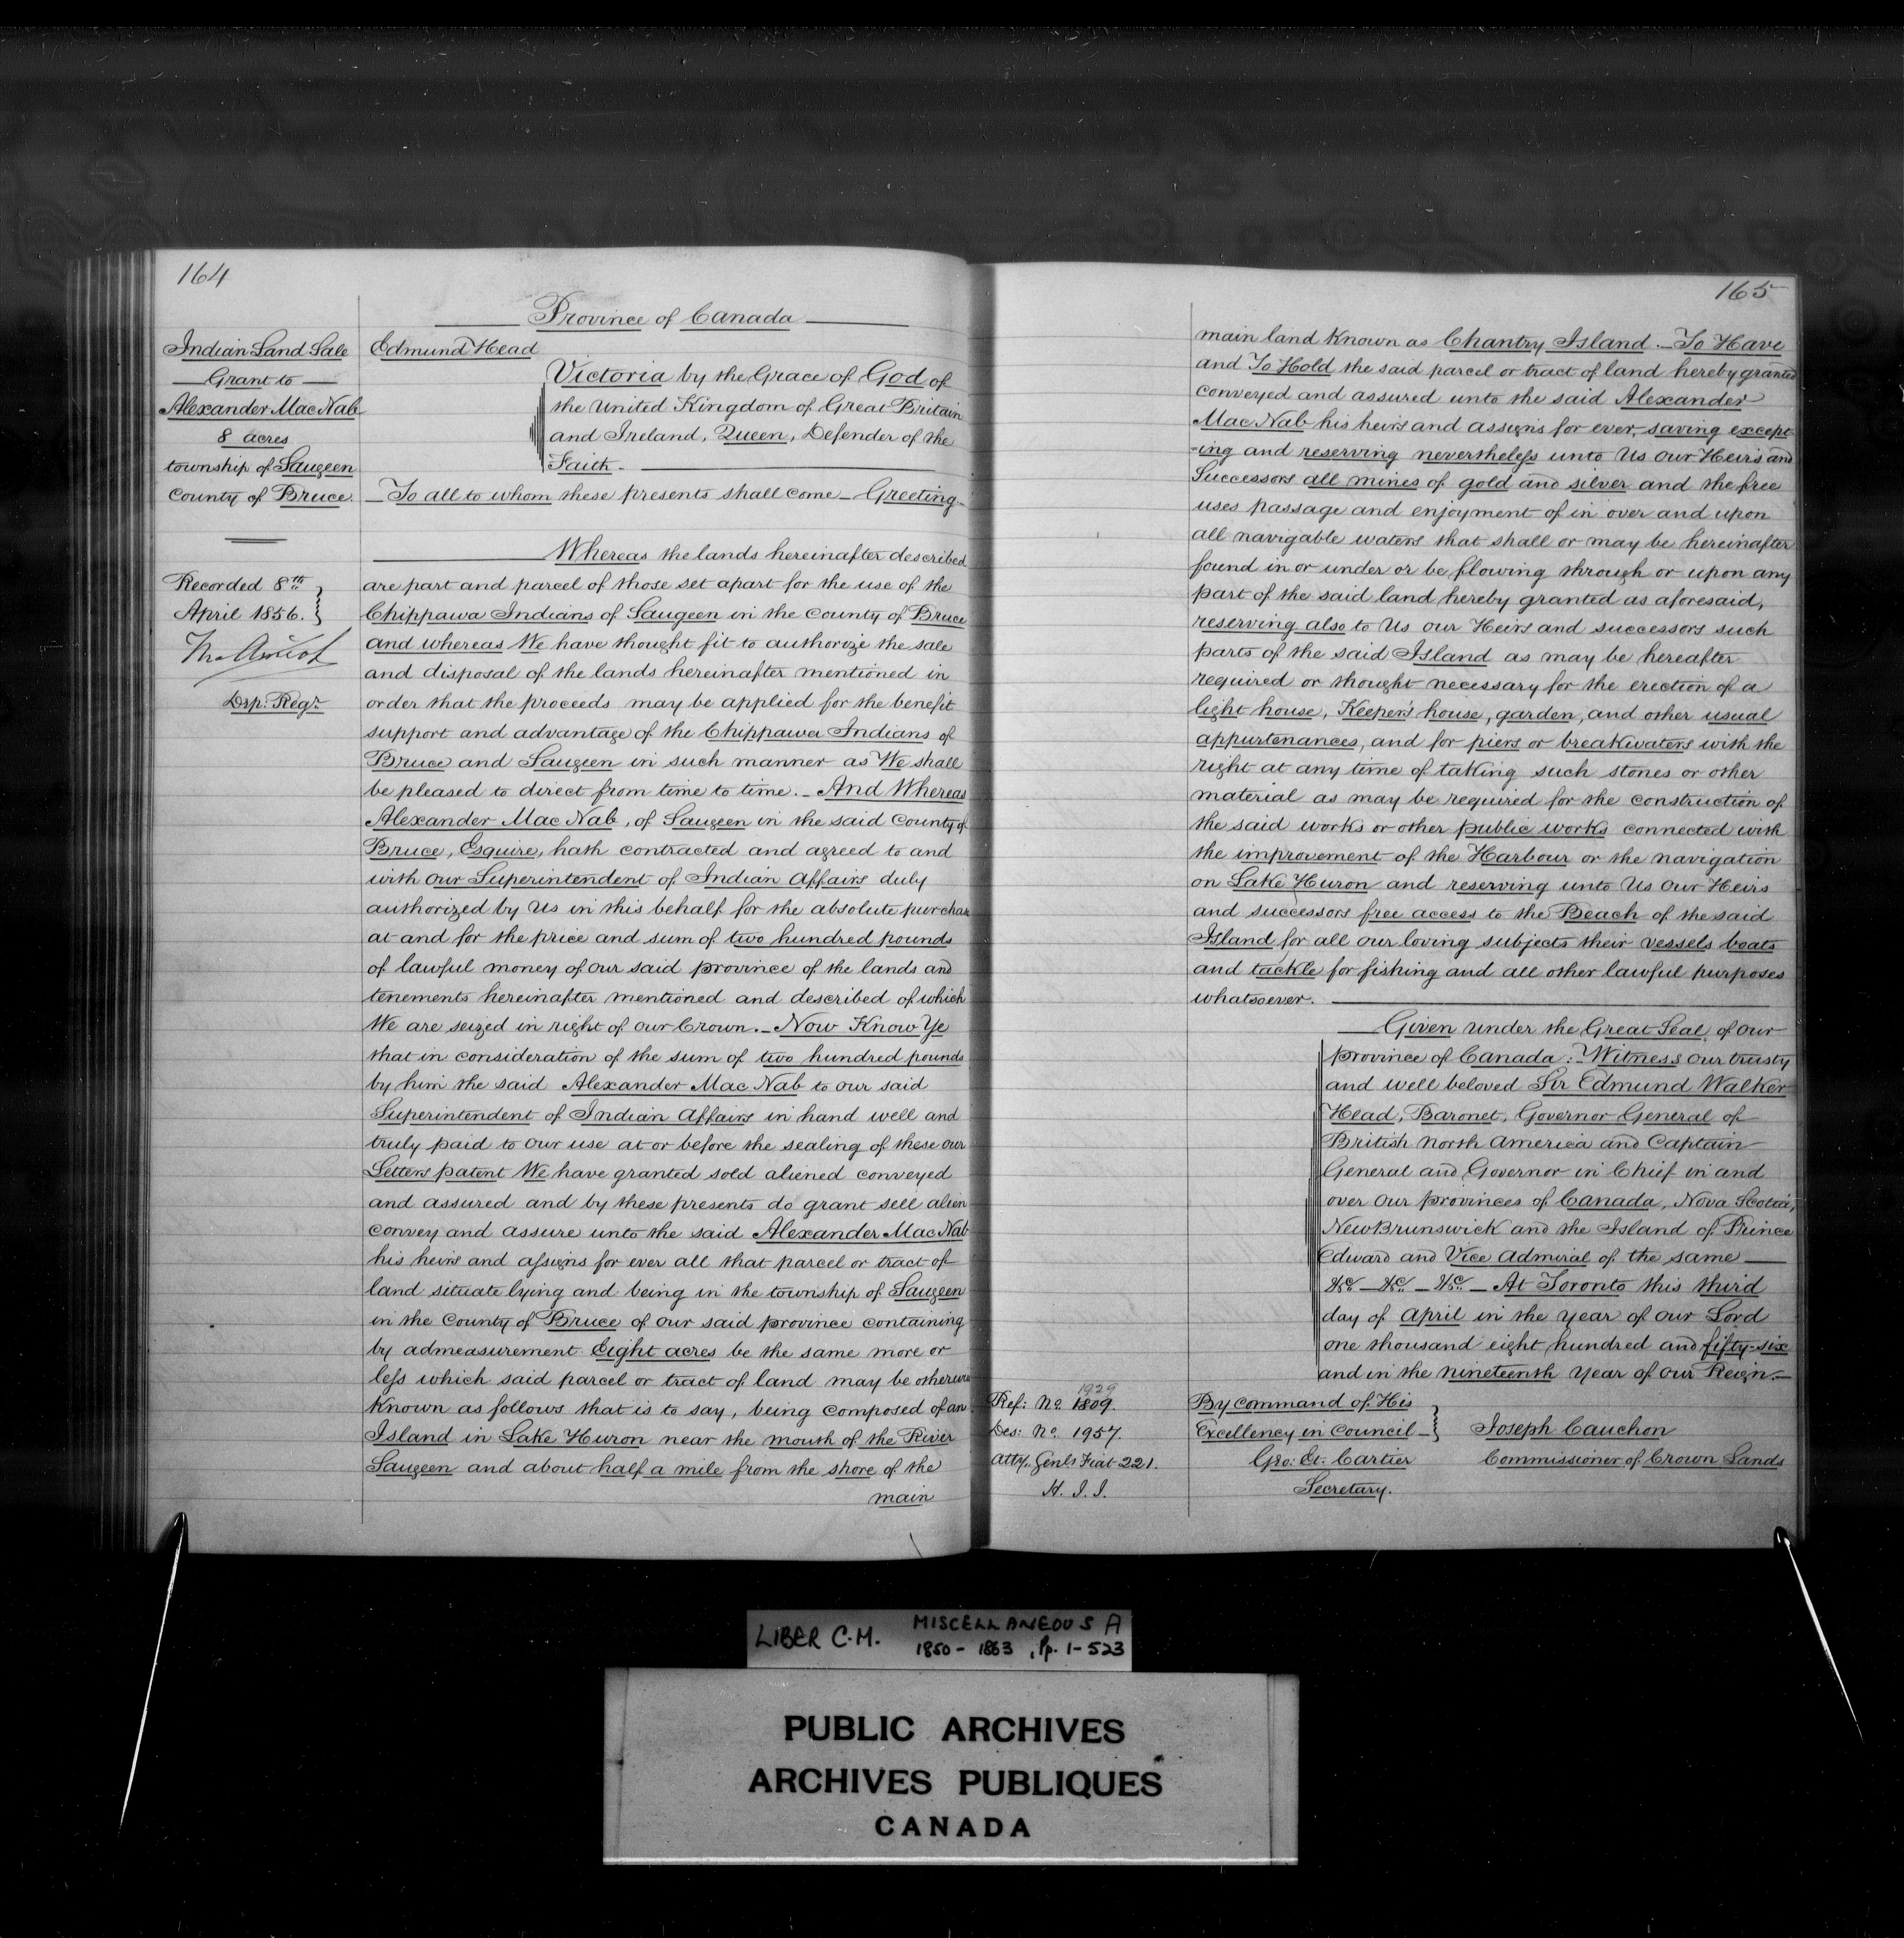 164
Province of Canada
Indian Land Sale
Grant to
Alexander Mac Nab
8 acres
township of Saugeen
County of Bruce.
Recorded 8th
April 1856.
Dep: Regr
Edmund Head
Victoria by the Grace of God of
the United Kingdom of Great Britain
and Ireland, Queen, Defender of the
Faith.
To all to whom these presents shall come - Greeting.
Whereas the lands hereinafter described
are part and parcel of those set apart for the use of the
Chippawa Indians of Saugeen in the County of Bruce
and whereas We have thought fit to authorize the sale
and disposal of the lands hereinafter mentioned in
order that the proceeds may be applied for the benefit
support and advantage of the Chippawa Indians of
Bruce and Saugeen in such manner as We shall
be pleased to direct from time to time. - And Whereas
Alexander Mac Nab, of Saugeen in the said County of
Bruce, Esquire, hath contracted and agreed to and
with our Superintendent of Indian Affairs duly
authorized by Us in this behalf for the absolute purchase
at and for the price and sum of two hundred pounds
of lawful money of our said province of the lands and
tenements hereinafter mentioned and described of which
We are seized in right of our Crown. - Now Know Ye
that in consideration of the sum of two hundred pounds
by him the said Alexander Mac Nab to our said
Superintendent of Indian Affairs in hand well and
truly paid to our use at or before the sealing of these our
Letters patent We have granted sold aliened conveyed
and assured and by these presents do grant sell alien
convey and assure unto the said Alexander Mac Nab
his heirs and assigns for ever all that parcel or tract of
land situate lying and being in the township of Saugeen
in the County of Bruce of our said province containing
by admeasurement Eight acres be the same more or
less which said parcel or tract of land may be otherwise
known as follows that is to say, being composed of an
Island in Lake Huron near the mouth of the River
Saugeen and about half a mile from the shore of the
main
165
main land known as Chantry Island. - To Have
and To Hold the said parcel or tract of land hereby granted
conveyed and assured unto the said Alexander
Mac Nab his heirs and assigns for ever, saving except
-ing and reserving nevertheless unto Us our Heirs and
Successors all mines of gold and silver and the free
uses passage and enjoyment of in over and upon
all navigable waters that shall or may be hereinafter
found in or under or be flowing through or upon any
part of the said land hereby granted as aforesaid,
reserving also to Us our Heirs and successors such
parts of the said Island as may be hereafter
required or thought necessary for the erection of a
light house, Keeper's house, garden, and other usual
appurtenances, and for piers or breakwaters with the
right at any time of taking such stones or other
material as may be required for the construction of
the said works or other public works connected with
the improvement of the Harbour or the navigation
on Lake Huron and reserving unto Us our Heirs
and successors free access to the Beach of the said
Island for all our loving subjects their vessels boats
and tackle for fishing and all other lawful purposes
whatsoever.
Given under the Great Seal of our
province of Canada: Witness our trusty
and well beloved Sir Edmund Walker
Head, Baronet, Governor General of
British North America and Captain
General and Governor in Chief in and
over our provinces of Canada, Nova Scotia,
New Brunswick and the Island of Prince
Edward and Vice Admiral of the same
&c - &c - &c - At Toronto this third
day of April in the year of our Lord
one thousand eight hundred and fifty-six
and in the nineteenth year of our Reign.-
1929
Ref: No 1809.
Des: No 1957.
Atty. Genls Fiat 221.
H. I. I.
By command of His
Excellency in Council
Geo: Et. Cartier
Secretary.
Joseph Cauchon
Commissioner of Crown Lands
LIBER C.M. MISCELLANEOUS A
1850 - 1863, Pp. 1-523
PUBLIC ARCHIVES
ARCHIVES PUBLIQUES
CANADA